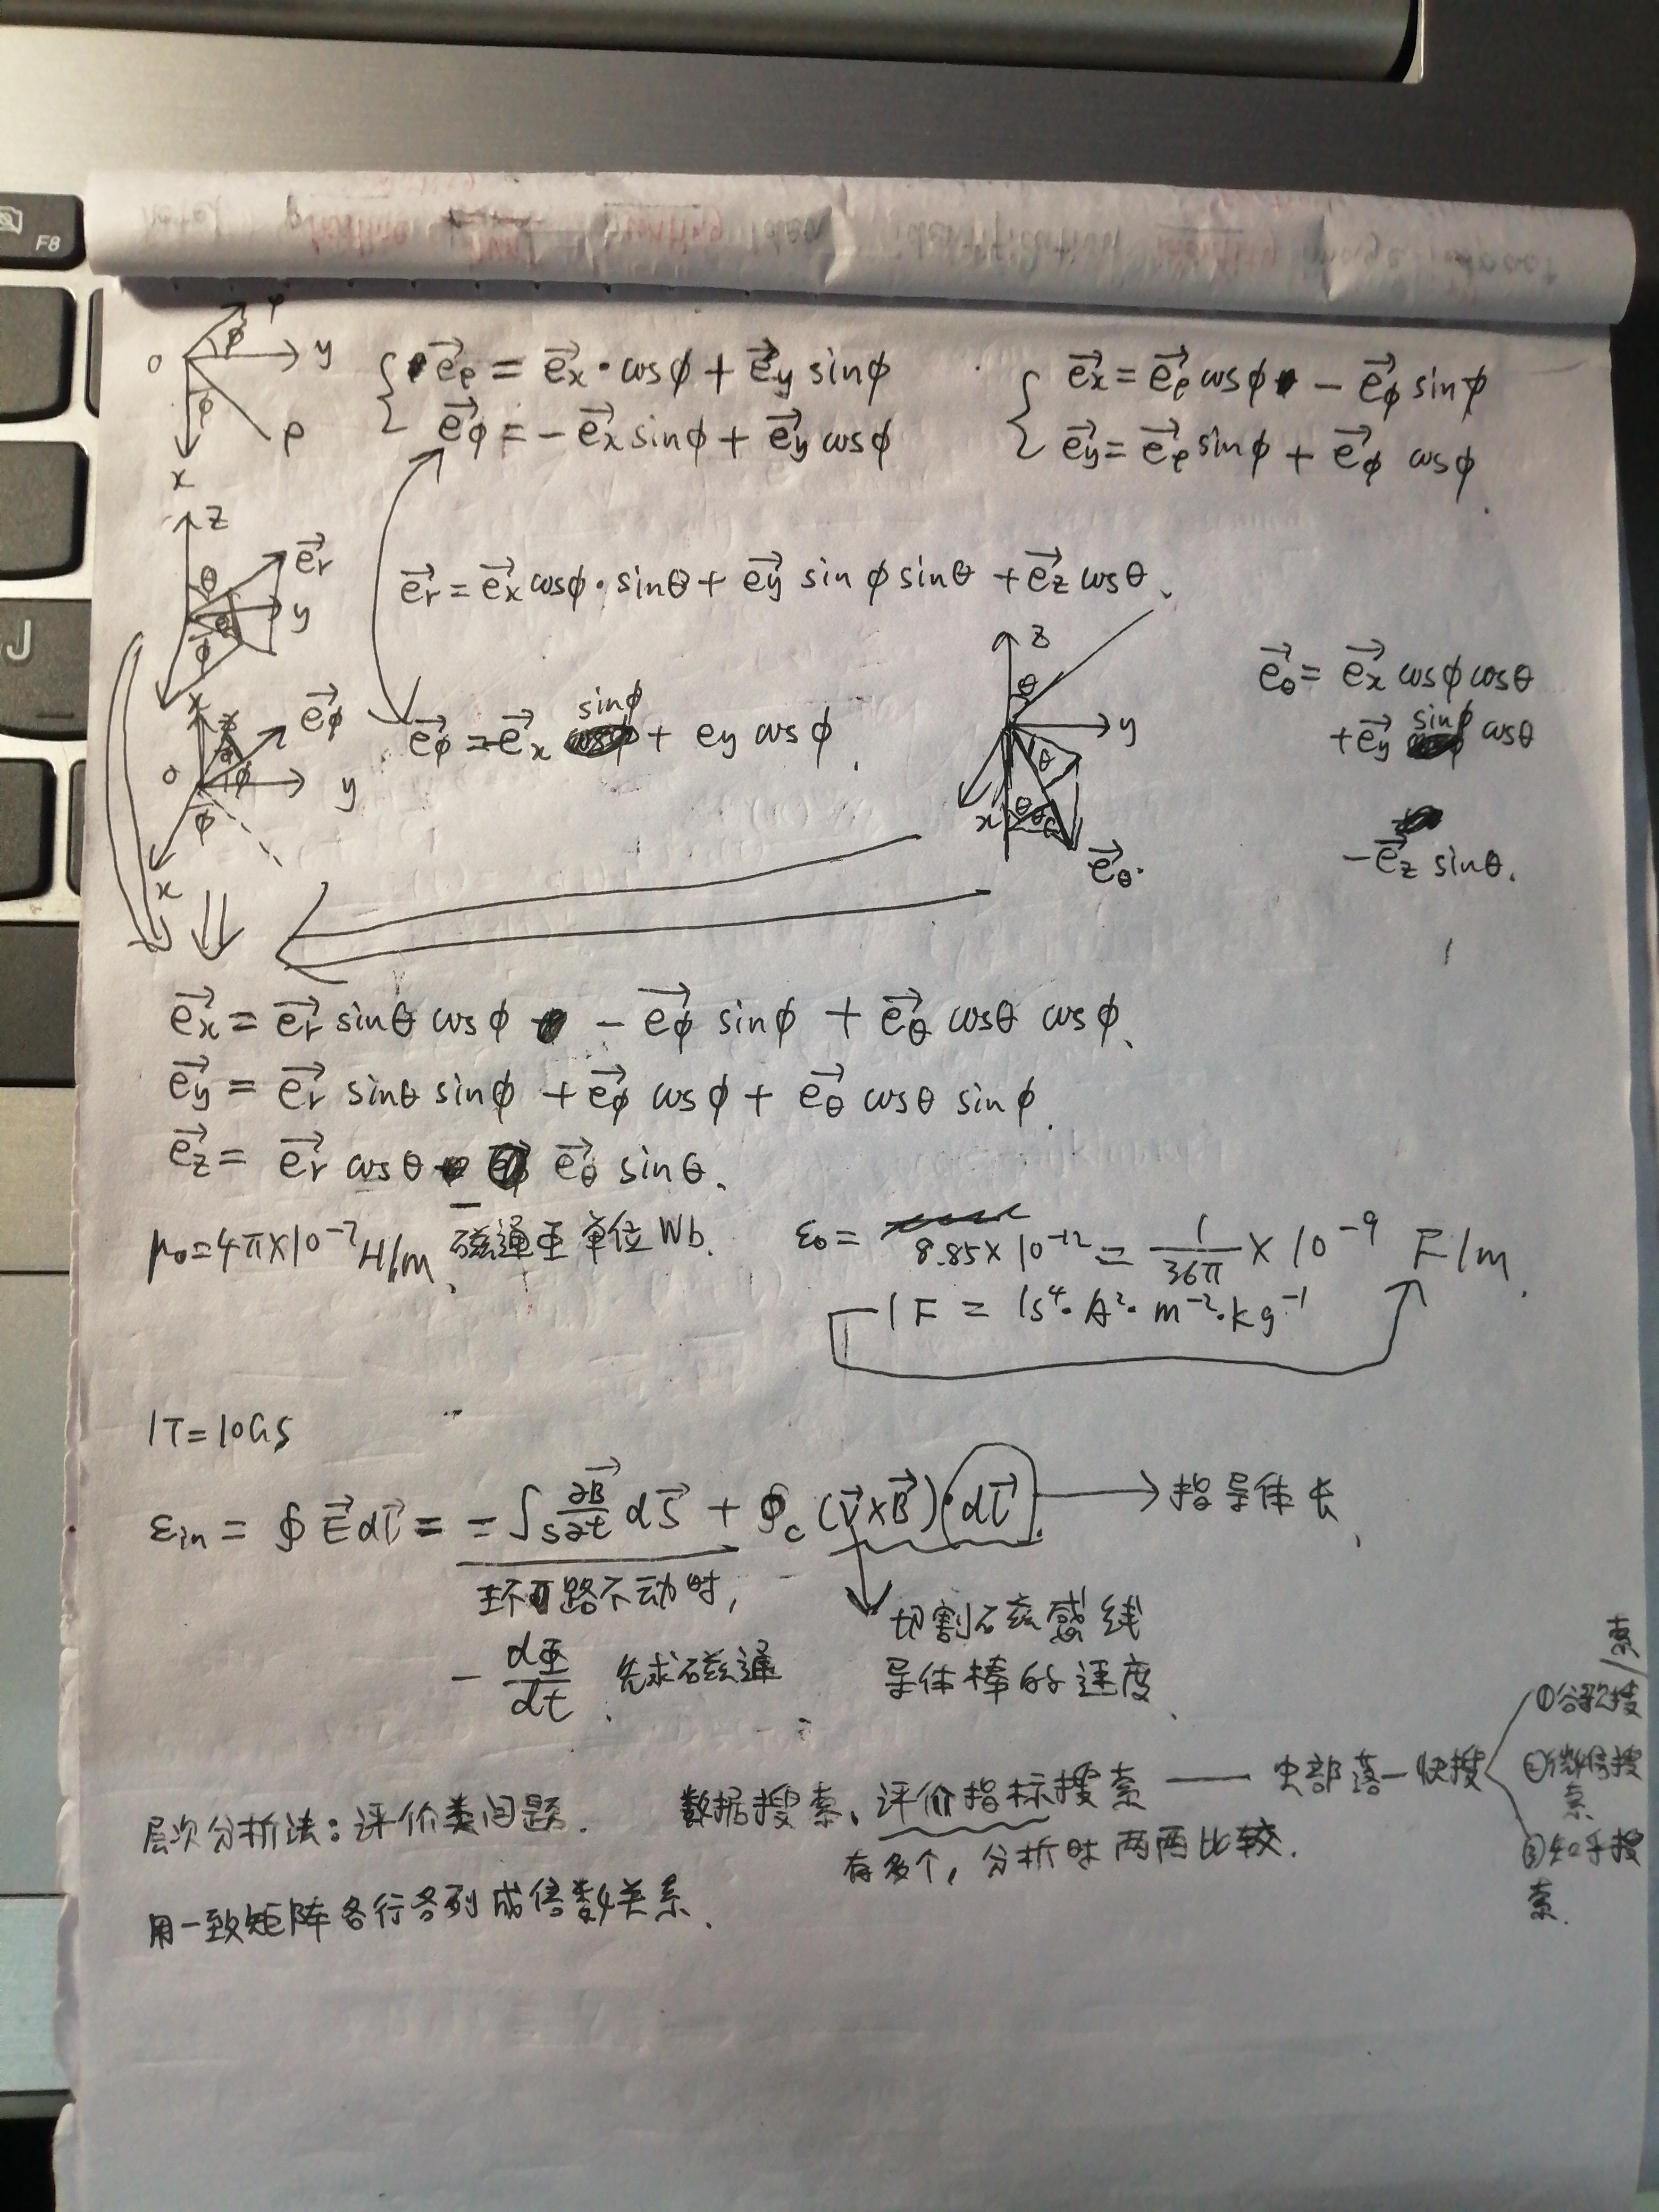 F8
J
O
φ
y
φ
ρ
x
{ e⃗ρ = e⃗x·cosφ + e⃗y sinφ
e⃗φ = -e⃗x sinφ + e⃗y cosφ
{ e⃗x = e⃗ρ cosφ - e⃗φ sinφ
e⃗y = e⃗ρ sinφ + e⃗φ cosφ
z
θ
e⃗r
y
φ
x
e⃗r = e⃗x cosφ·sinθ + e⃗y sinφ sinθ + e⃗z cosθ.
e⃗φ
O
φ
y
φ
x
e⃗φ = -e⃗x sinφ + ey cosφ.
z
θ
y
θ
x
θ
e⃗θ.
e⃗θ = e⃗x cosφ cosθ
+e⃗y sinφ cosθ
-e⃗z sinθ.
e⃗x = e⃗r sinθ cosφ - e⃗φ sinφ + e⃗θ cosθ cosφ.
e⃗y = e⃗r sinθ sinφ + e⃗φ cosφ + e⃗θ cosθ sinφ.
e⃗z = e⃗r cosθ - e⃗θ sinθ.
μ₀=4π×10⁻⁷H/m. 磁通量单位Wb.
ε₀ = 8.85×10⁻¹² = 1/36π × 10⁻⁹ F/m.
1F = 1s⁴·A²·m⁻²·kg⁻¹
1T=10GS
εin = ∮E⃗dl⃗ = -∫s ∂B⃗/∂t dS⃗ + ∮c (v⃗×B⃗)·dl⃗. → 指导体长.
环路不动时,
-dΦ/dt. 先求磁通
切割磁感线
导体棒的速度.
层次分析法:评价类问题. 数据搜索、评价指标搜索 — 虫部落—快搜
①谷歌搜索
②微信搜索
③知乎搜索.
有多个,分析时两两比较.
用一致矩阵各行各列成倍数关系.